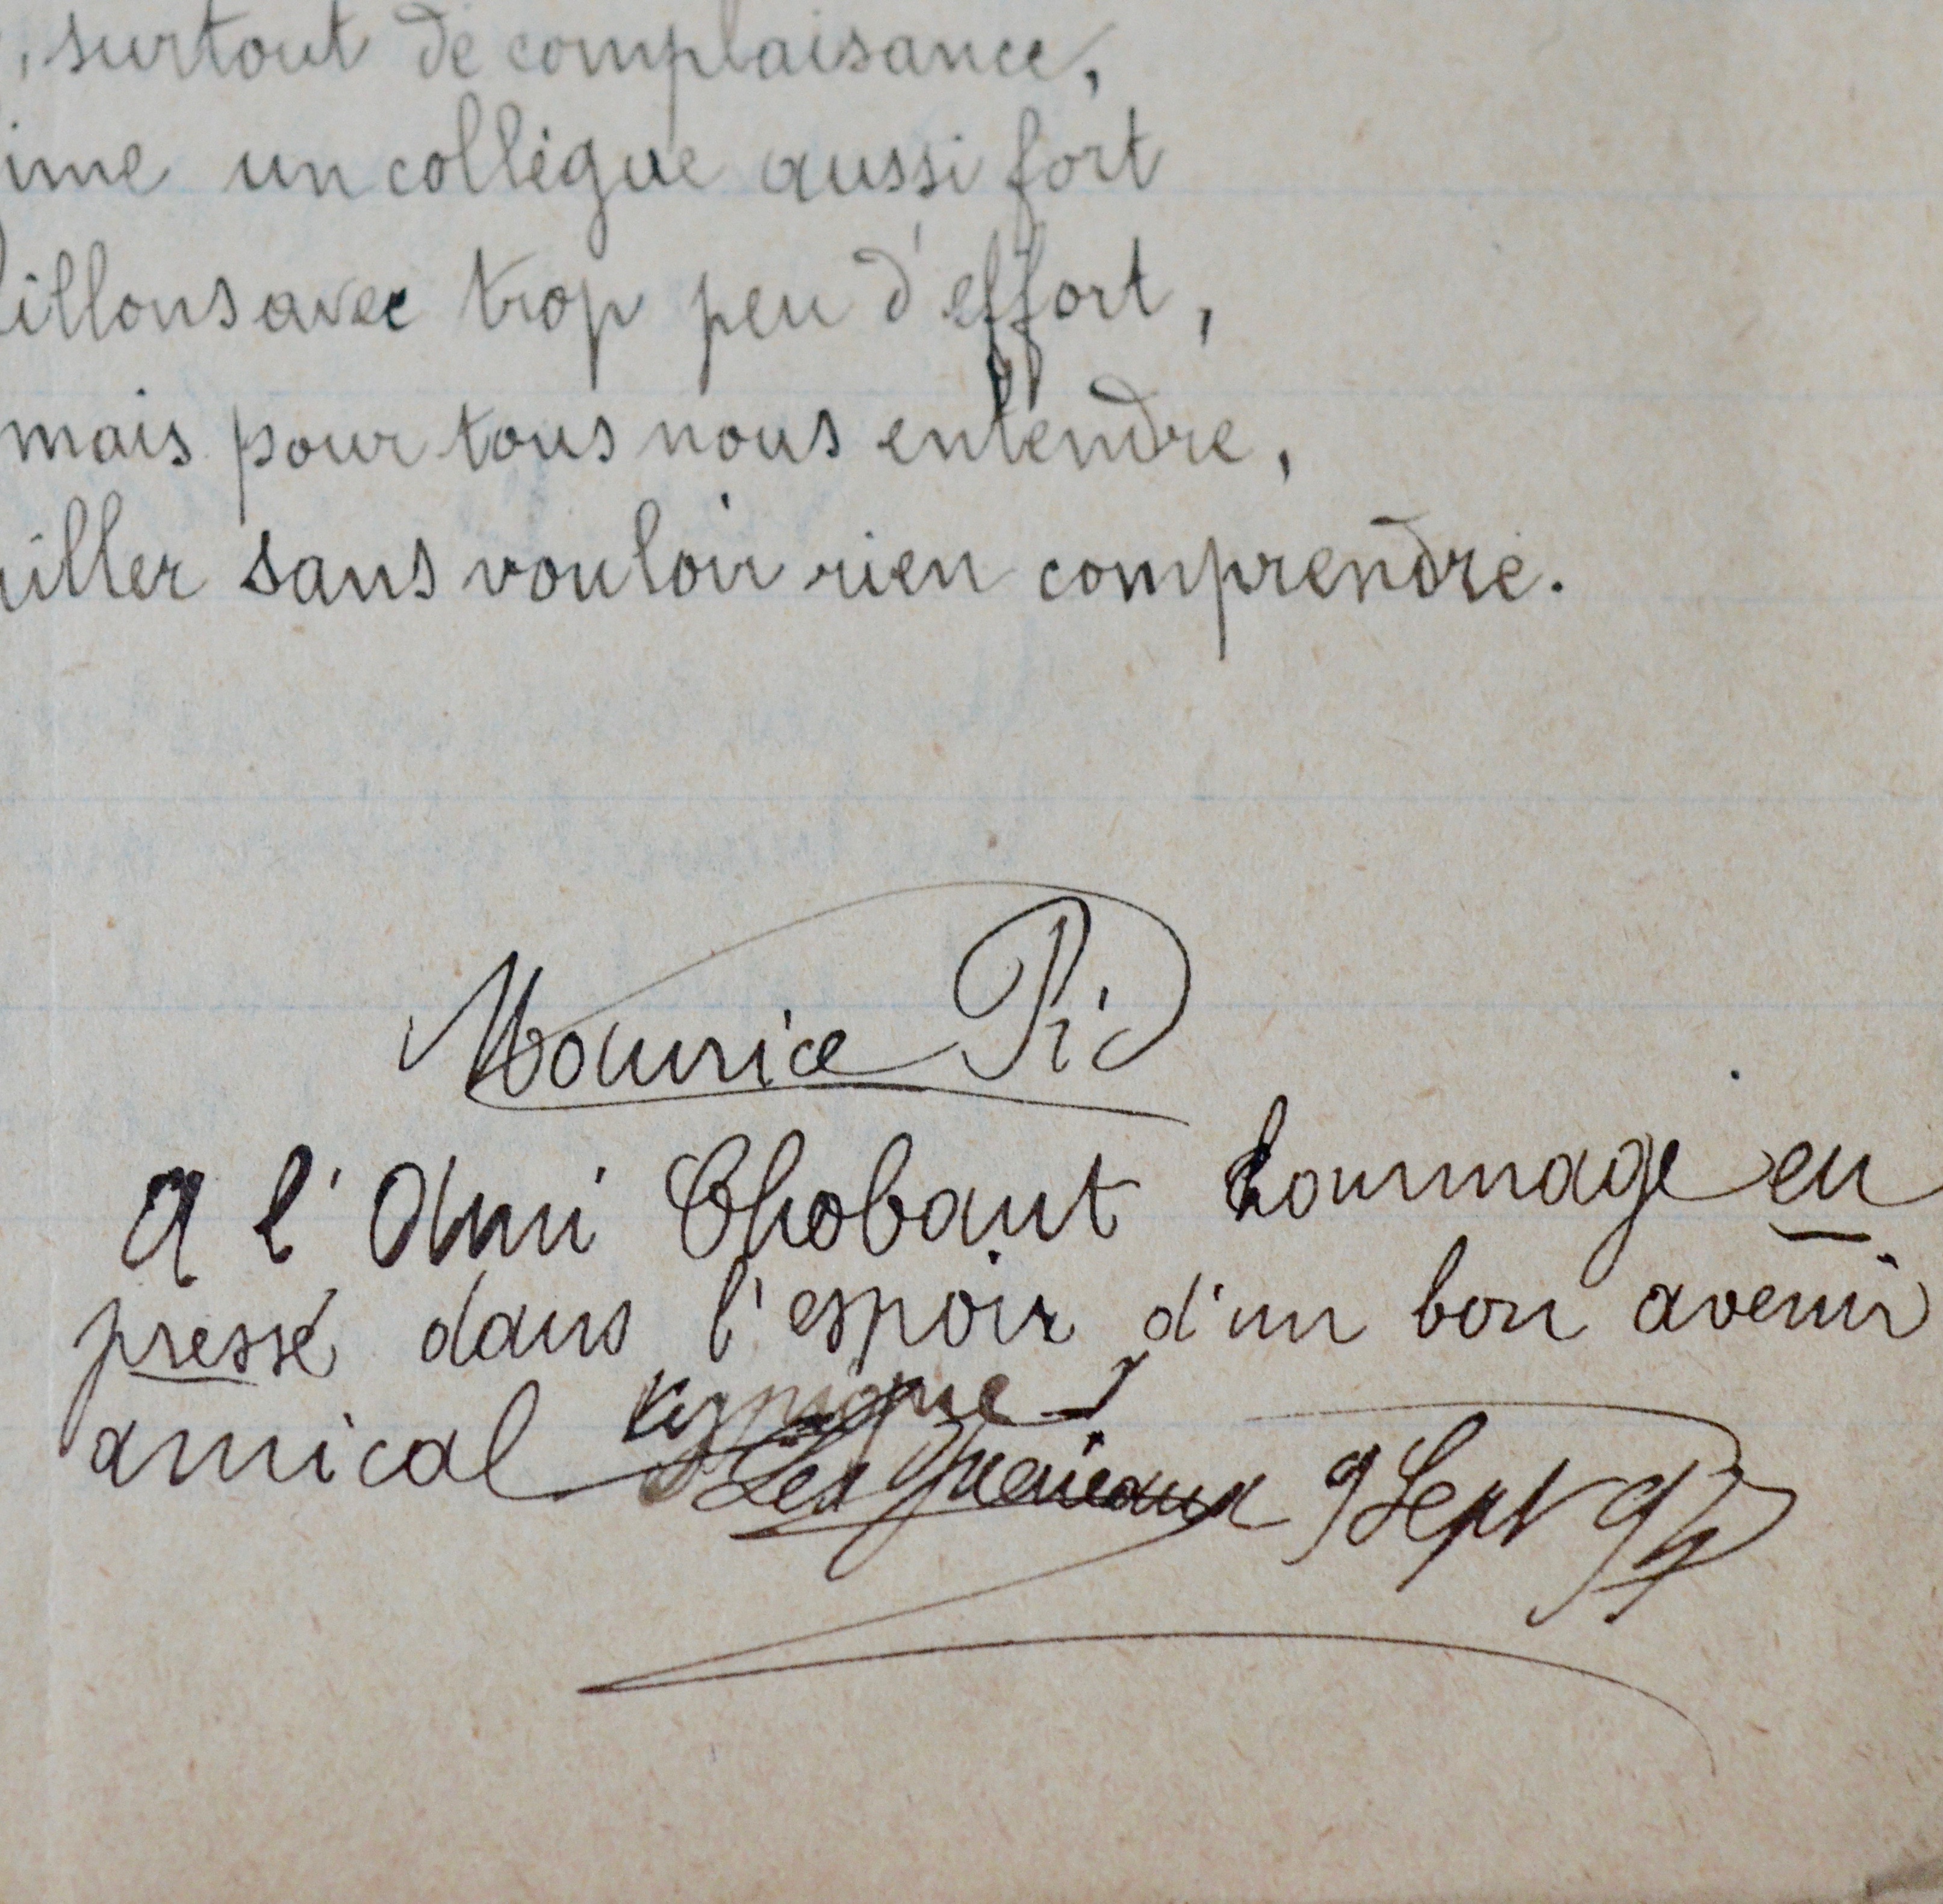 , surtout de complaisance,
ime un collègue aussi fort
illons avec trop peu d'effort,
mais pour tous nous entendre,
iller sans vouloir rien comprendre.
Maurice Pic
A l'Ami Chobaut hommage em
pressé dans l'espoir d'un bon avenir
amical
9 Sept 94